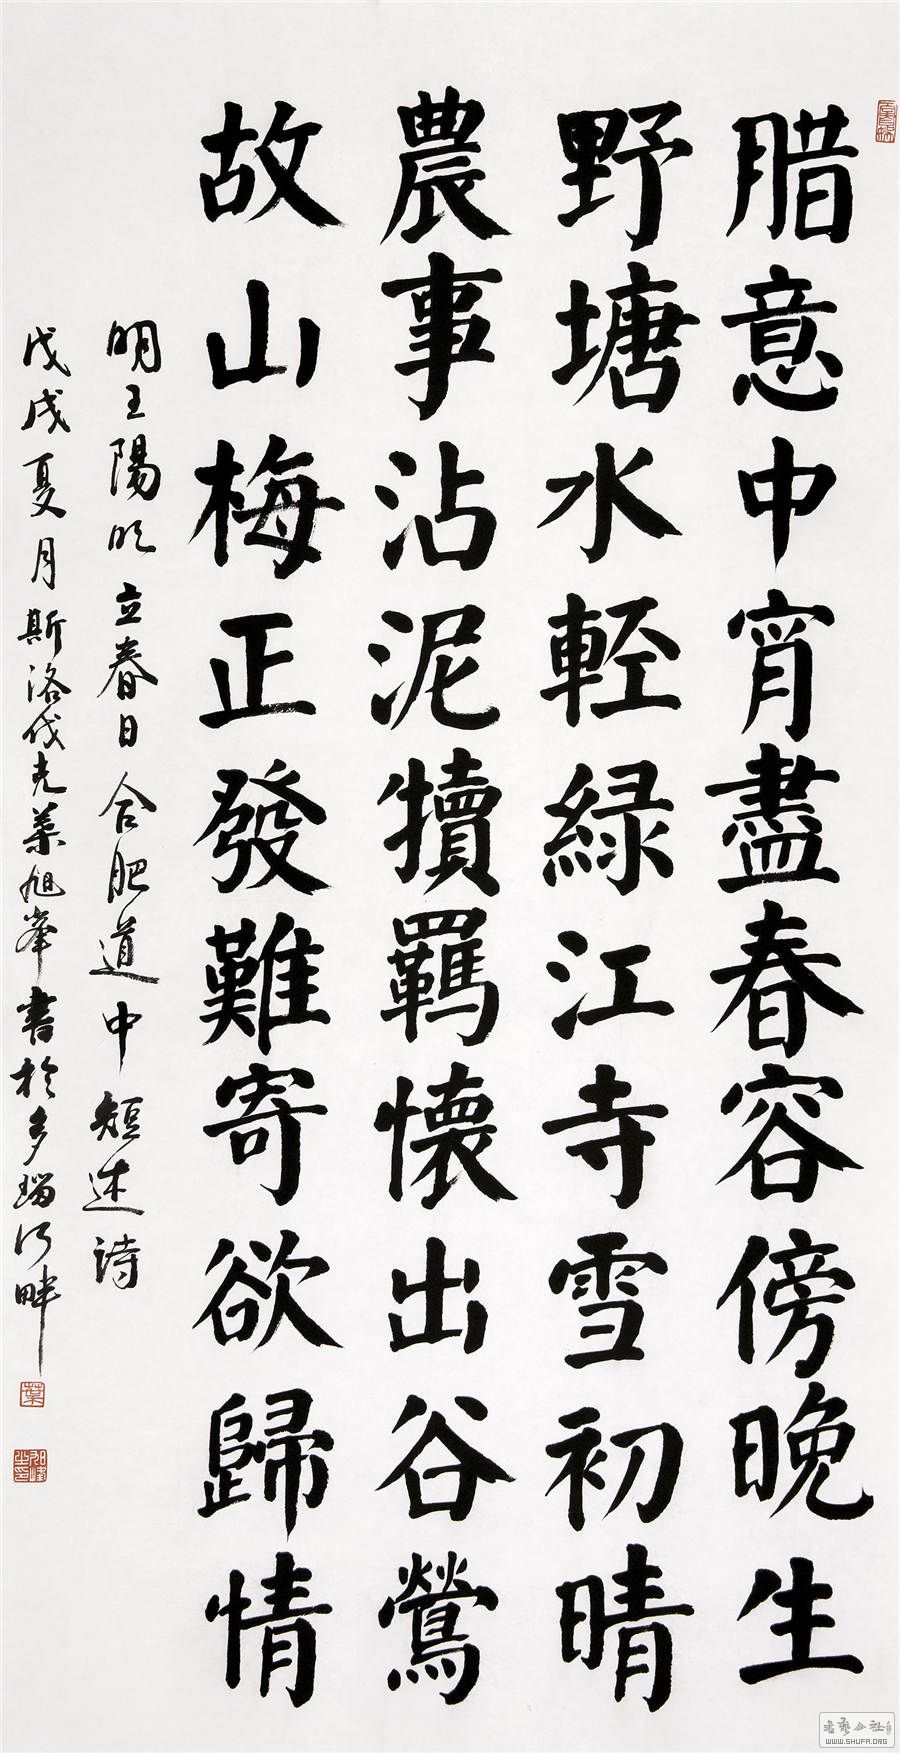 腊意中宵盡春容傍晚生
野塘水輕緑江寺雪初晴
農事沾泥犢羈懷出谷鶯
故山梅正發難寄欲歸情
明王陽明立春日合肥道中短述詩
戊戌夏月斯洛伐克葉旭峯書於多瑙河畔
葉
WWW.SHUFA.ORG